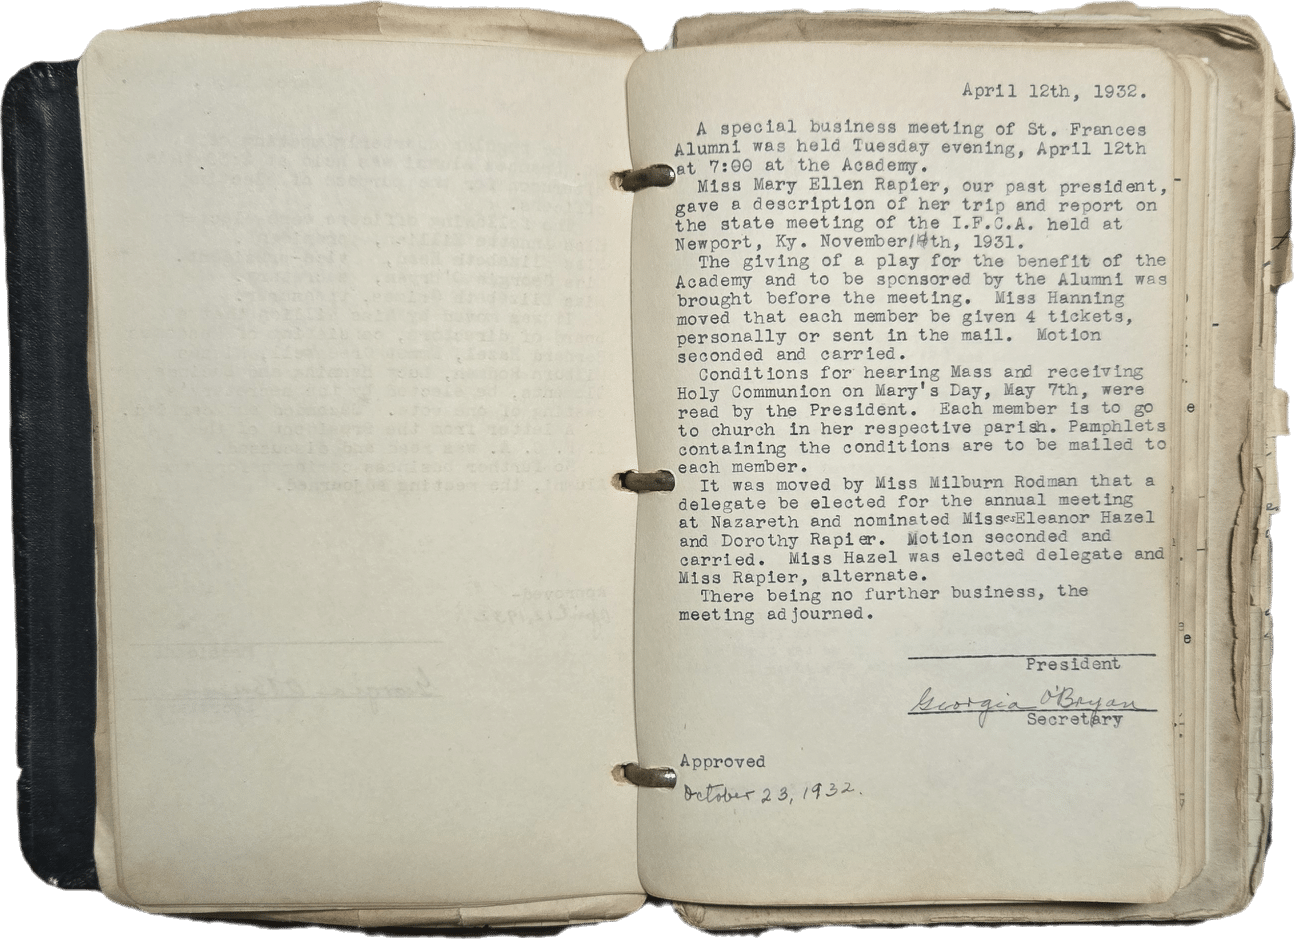 April 12th, 1932.
A special business meeting of St. Frances
Alumni was held Tuesday evening, April 12th
at 7:00 at the Academy.
Miss Mary Ellen Rapier, our past president,
gave a description of her trip and report on
the state meeting of the I.F.C.A. held at
Newport, Ky. November 14th, 1931.
The giving of a play for the benefit of the
Academy and to be sponsored by the Alumni was
brought before the meeting. Miss Hanning
moved that each member be given 4 tickets,
personally or sent in the mail. Motion
seconded and carried.
Conditions for hearing Mass and receiving
Holy Communion on Mary's Day, May 7th, were
read by the President. Each member is to go
to church in her respective parish. Pamphlets
containing the conditions are to be mailed to
each member.
It was moved by Miss Milburn Rodman that a
delegate be elected for the annual meeting
at Nazareth and nominated Misses Eleanor Hazel
and Dorothy Rapier. Motion seconded and
carried. Miss Hazel was elected delegate and
Miss Rapier, alternate.
There being no further business, the
meeting adjourned.
President
Georgia O'Bryan
Secretary
Approved
October 23, 1932.